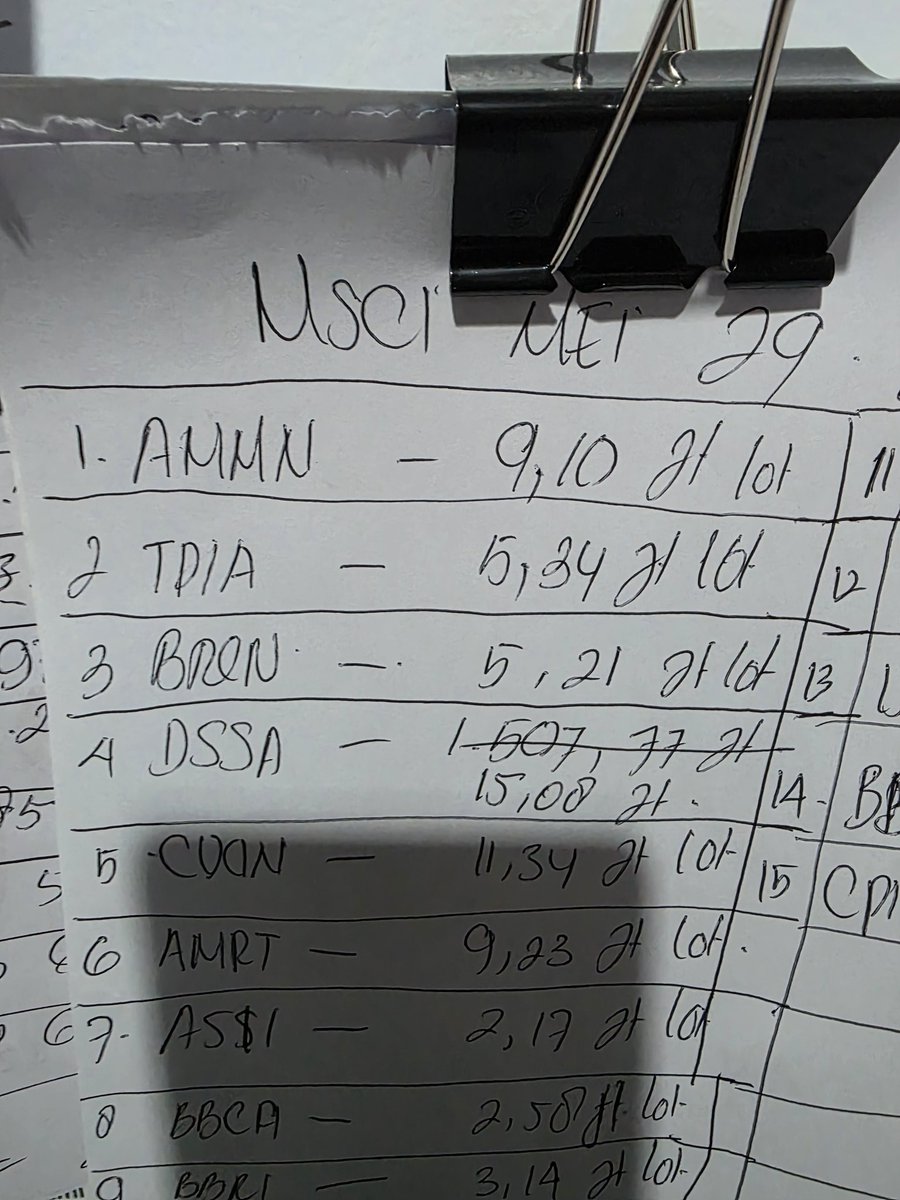 MSCI MEI 29.
1. AMMN - 9,10 jt lot
2 TPIA - 5,34 jt lot
3 BREN - 5,21 jt lot
4 DSSA - 1 507, 77 jt
15,08 jt.
5 CUAN - 11,34 jt lot
6 AMRT - 9,23 jt lot.
7. ASSI - 2,17 jt lot
8 BBCA - 2,58 jt lot
9 BBRI - 3,14 jt lot
11
12
13
14.
15